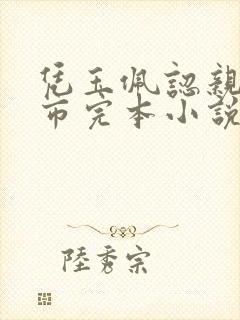 凭玉佩認親
市完本小說
陸秀宗